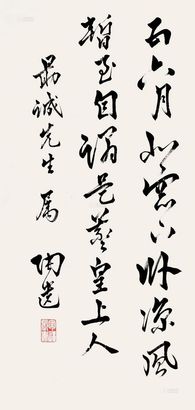 五六月北窗下卧凉风
暂至自谓是羲皇上人
勗诚先生属 陶遗